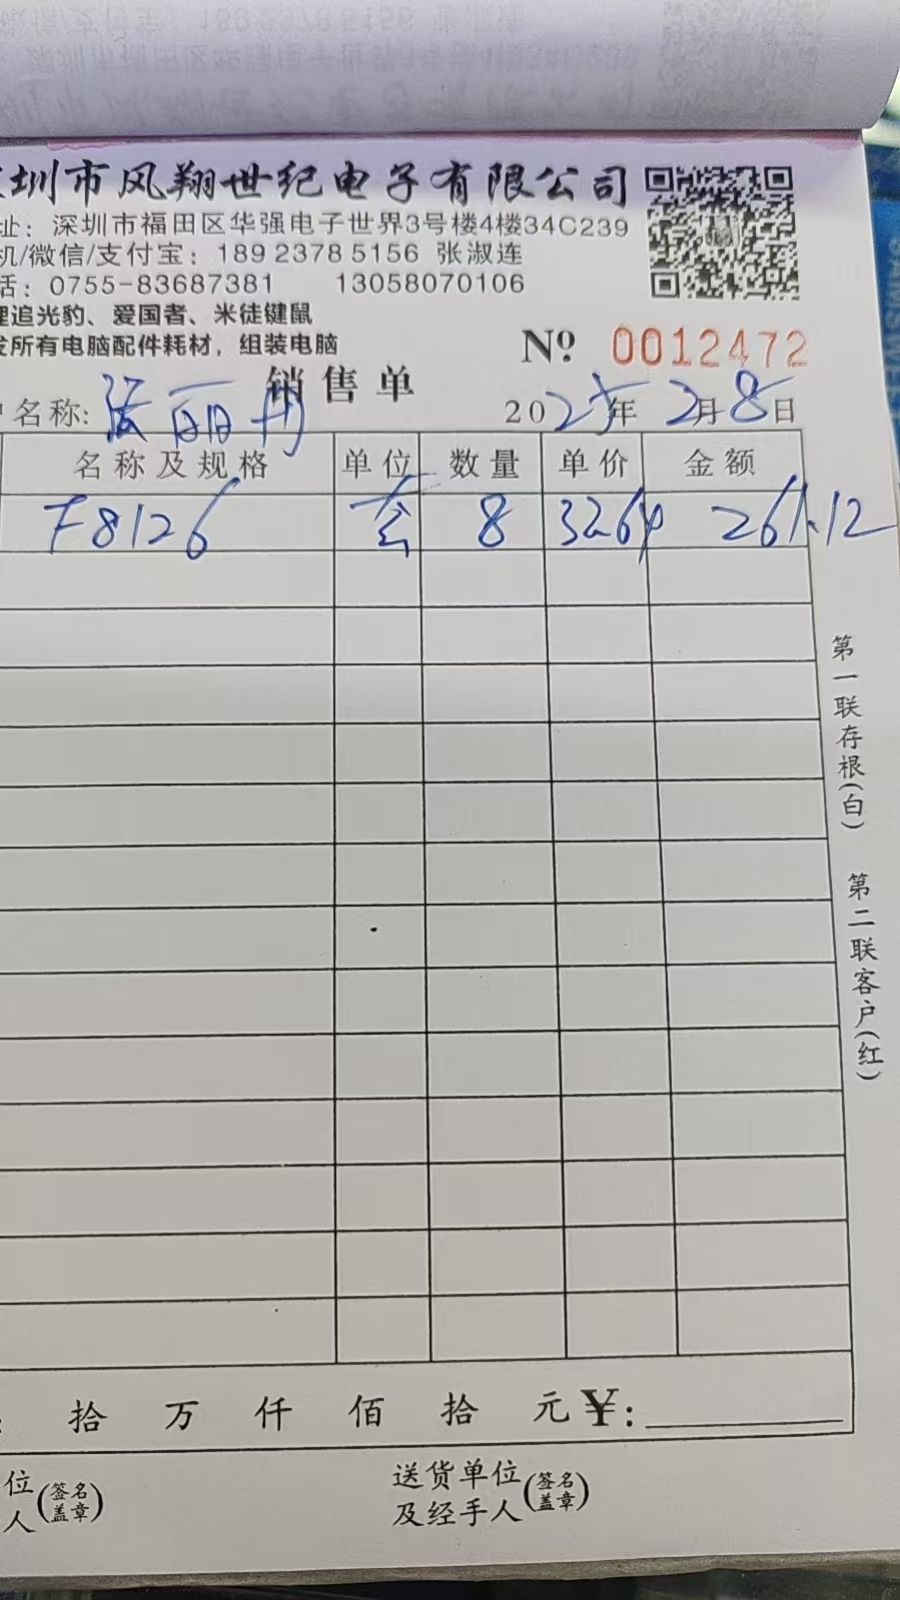 圳市风翔世纪电子有限公司
址：深圳市福田区华强电子世界3号楼4楼34C239
机/微信/支付宝：189 2378 5156 张淑连
话：0755-83687381 13058070106
理追光豹、爱国者、米徒键鼠
发所有电脑配件耗材，组装电脑
№ 0012472
销售单
户名称: 张丽丹 2025年2月8日
名称及规格 单位 数量 单价 金额
F8126 套 8 32.64 261.12
第一联存根(白) 第二联客户(红)
拾 万 仟 佰 拾 元 ¥:
位 (签名盖章) 送货单位 (签名盖章)
人 及经手人